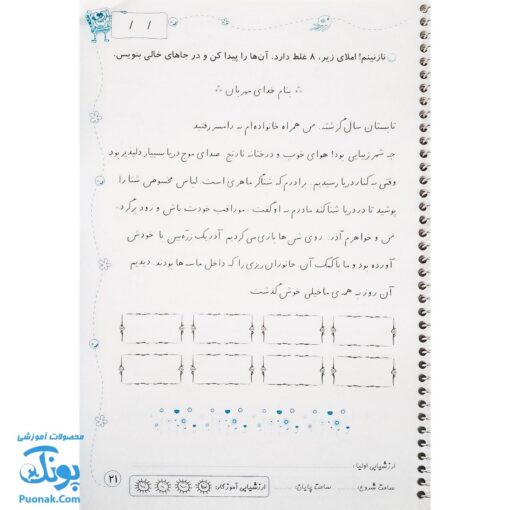 / /
نازنینم! املای زیر، ۸ غلط دارد. آن‌ها را پیدا کن و در جاهای خالی بنویس.
بنام خدای مهربان
تابستان سال گزشته، من همراه خانواده‌ام به رامسر رفتید
چه شهر زیبایی بود! هوای خوب و درختانه نارنج. صدای موج دریا بسیار دلپدیر بود
وقتی به کنار دریا رسیدیم. برادرم که شناگر ماهری است. لباس مخسوص شنا را
پوشید تا در دریا شنا کند مادرم به او گفت: موراقب خودت باش و زود برگرد.
من و خواهرم آذر، روی شن‌ها بازی می‌کردیم آذر یک زرّه‌بین با خودش
آورده بود و ما با کمک آن. جانوران ریزی را که داخل ماسه‌ها بودند. دیدیم
آن روز به همه‌ی ما خیلی خوش گدشت.
ارزشیابی اولیا:
ساعت شروع: ساعت پایان:
ارزشیابی آموزگار:
۲۱
محصولات آموزشی
پونک
Puonak.Com